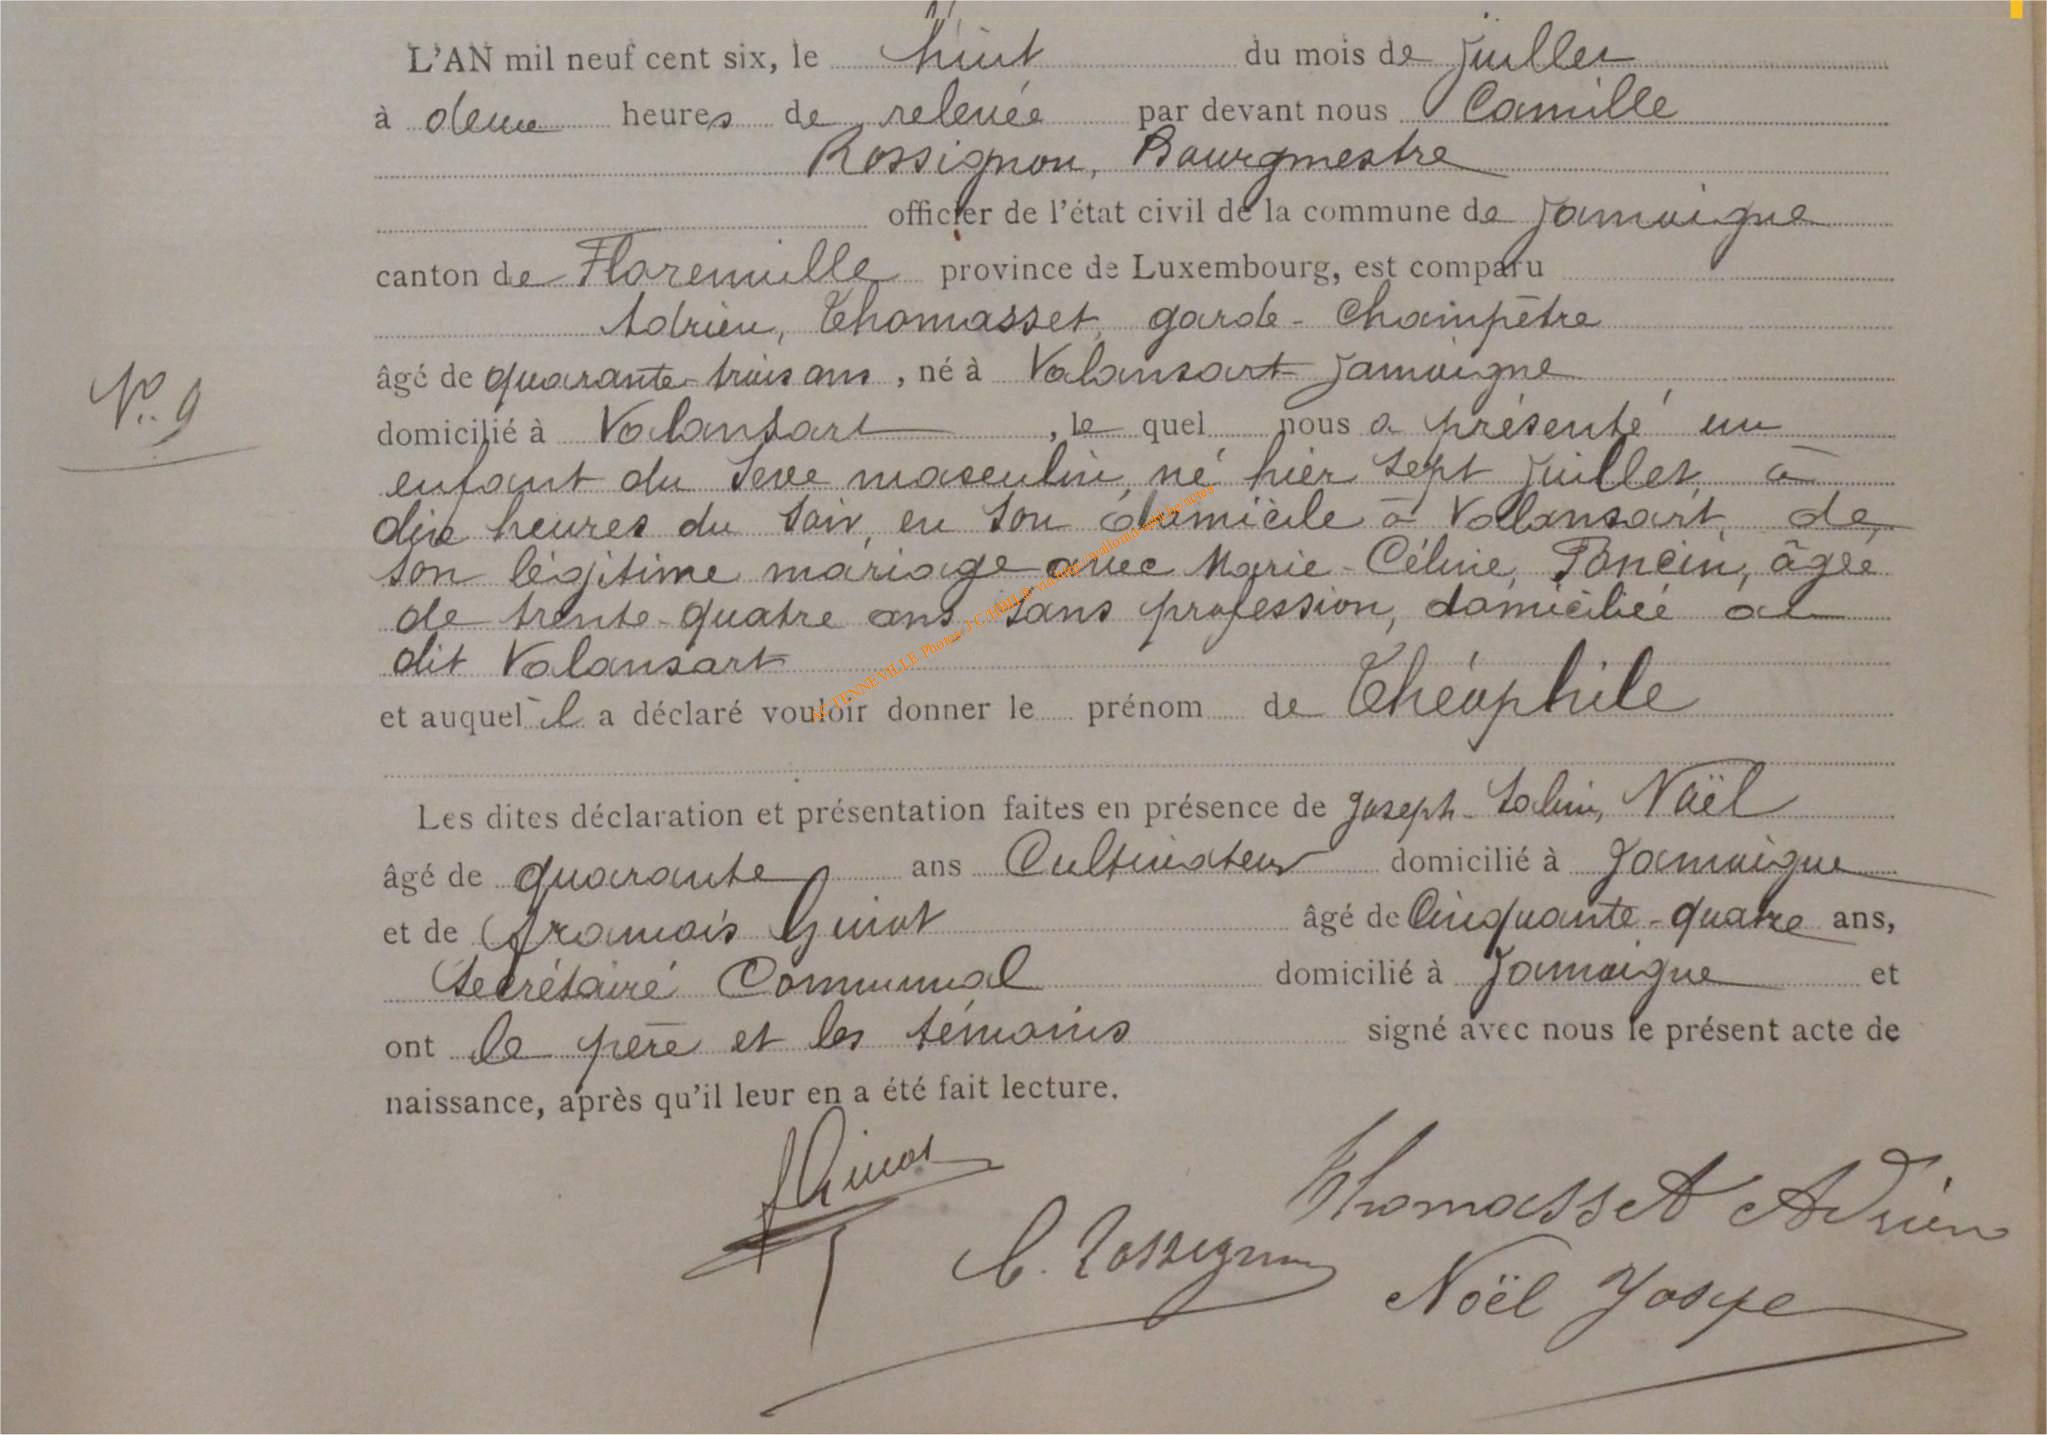 L'AN mil neuf cent six, le huit du mois de juillet
à deux heures de relevée par devant nous Camille
Rossignon, Bourgmestre
officier de l'état civil de la commune de Jamoigne
canton de Florenville province de Luxembourg, est comparu
Adrien, Thomasset, garde-champêtre
âgé de quarante-trois ans, né à Valansart-Jamoigne
N° 9
domicilié à Valansart, le quel nous a présenté un
enfant du sexe masculin, né hier sept juillet, à
dix heures du soir, en son domicile à Valansart, de
son légitime mariage avec Marie-Céline, Poncin, âgée
de trente-quatre ans, sans profession, domiciliée au
dit Valansart
et auquel il a déclaré vouloir donner le prénom de Théophile
Les dites déclaration et présentation faites en présence de Joseph-Sabin, Noël
âgé de quarante ans Cultivateur domicilié à Jamoigne
et de François Ginot âgé de Cinquante-quatre ans,
Secrétaire Communal domicilié à Jamoigne et
ont le père et les témoins signé avec nous le présent acte de
naissance, après qu'il leur en a été fait lecture.
f Ginot
Thomasset Adrien
C. Rossignon
Noël Josepe